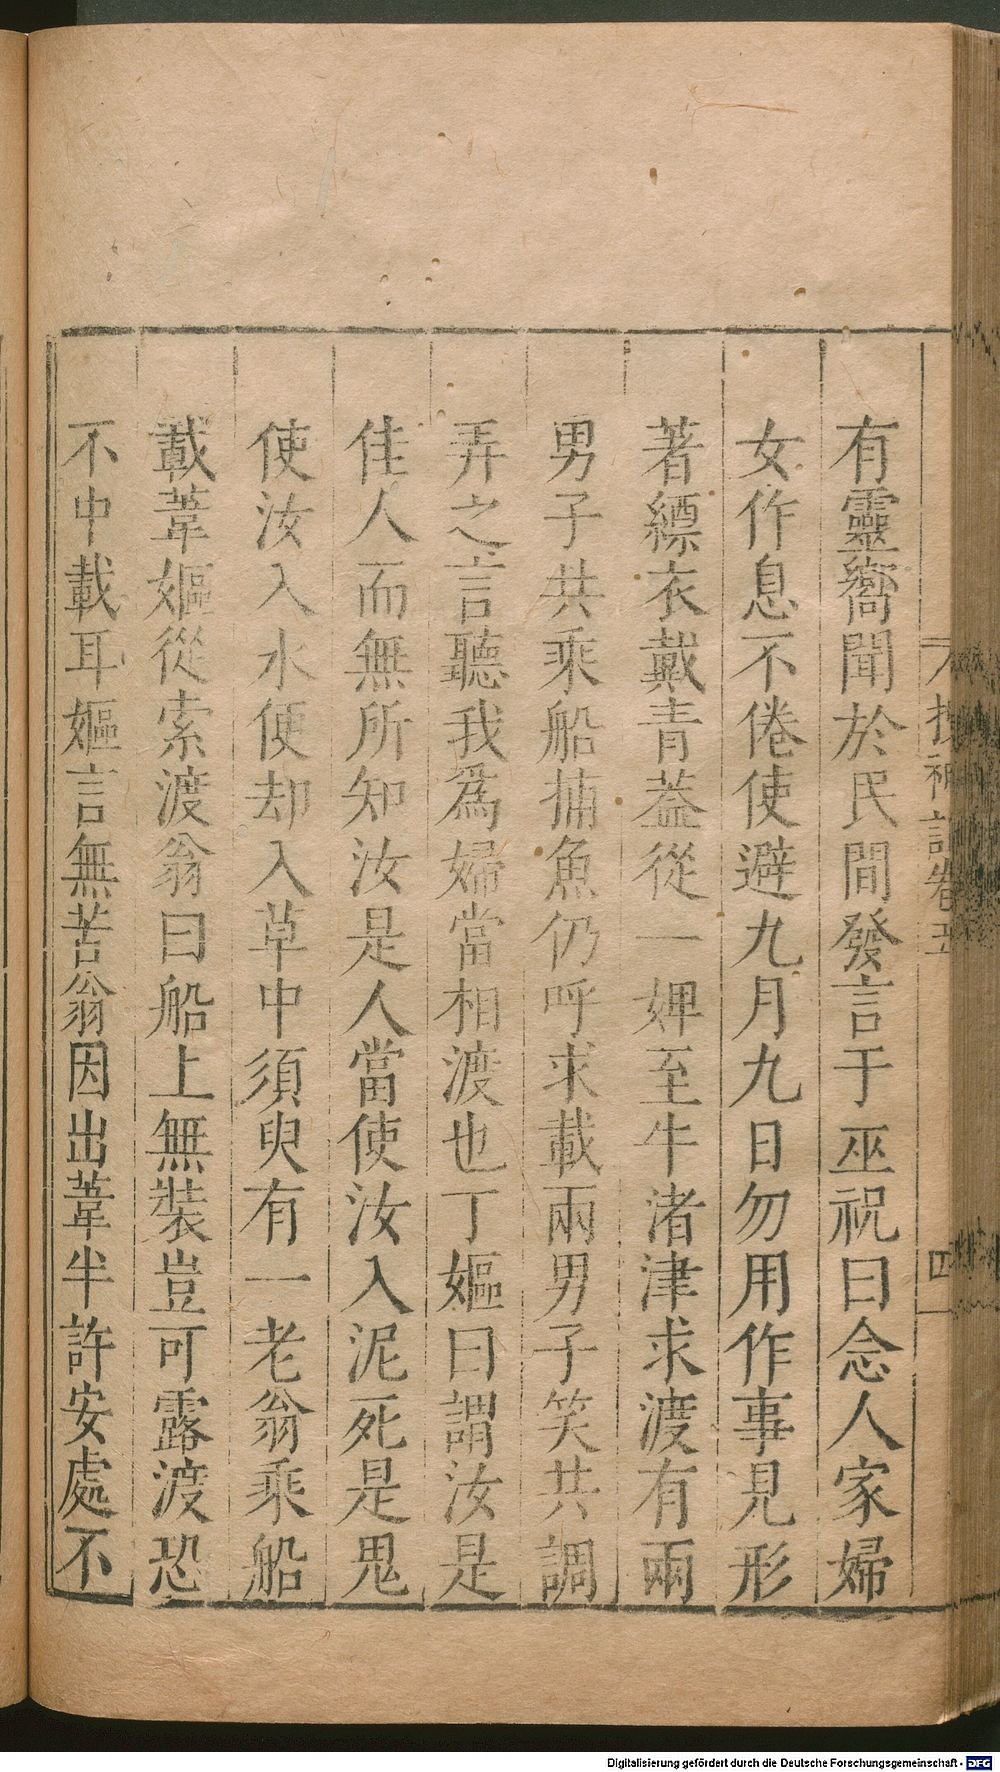 有靈嚮聞於民間發言于巫祝曰念人家婦
女作息不倦使避九月九日勿用作事見形
著縹衣戴青葢從一婢至牛渚津求渡有兩
男子共乘船捕魚仍呼求載兩男子笑共調
弄之言聽我爲婦當相渡也丁嫗曰謂汝是
佳人而無所知汝是人當使汝入泥死是鬼
使汝入水便却入草中須臾有一老翁乘船
載葦嫗從索渡翁曰船上無裝豈可露渡恐
不中載耳嫗言無苦翁因出葦半許安處不
搜神記卷五
四
Digitalisierung gefördert durch die Deutsche Forschungsgemeinschaft - DFG